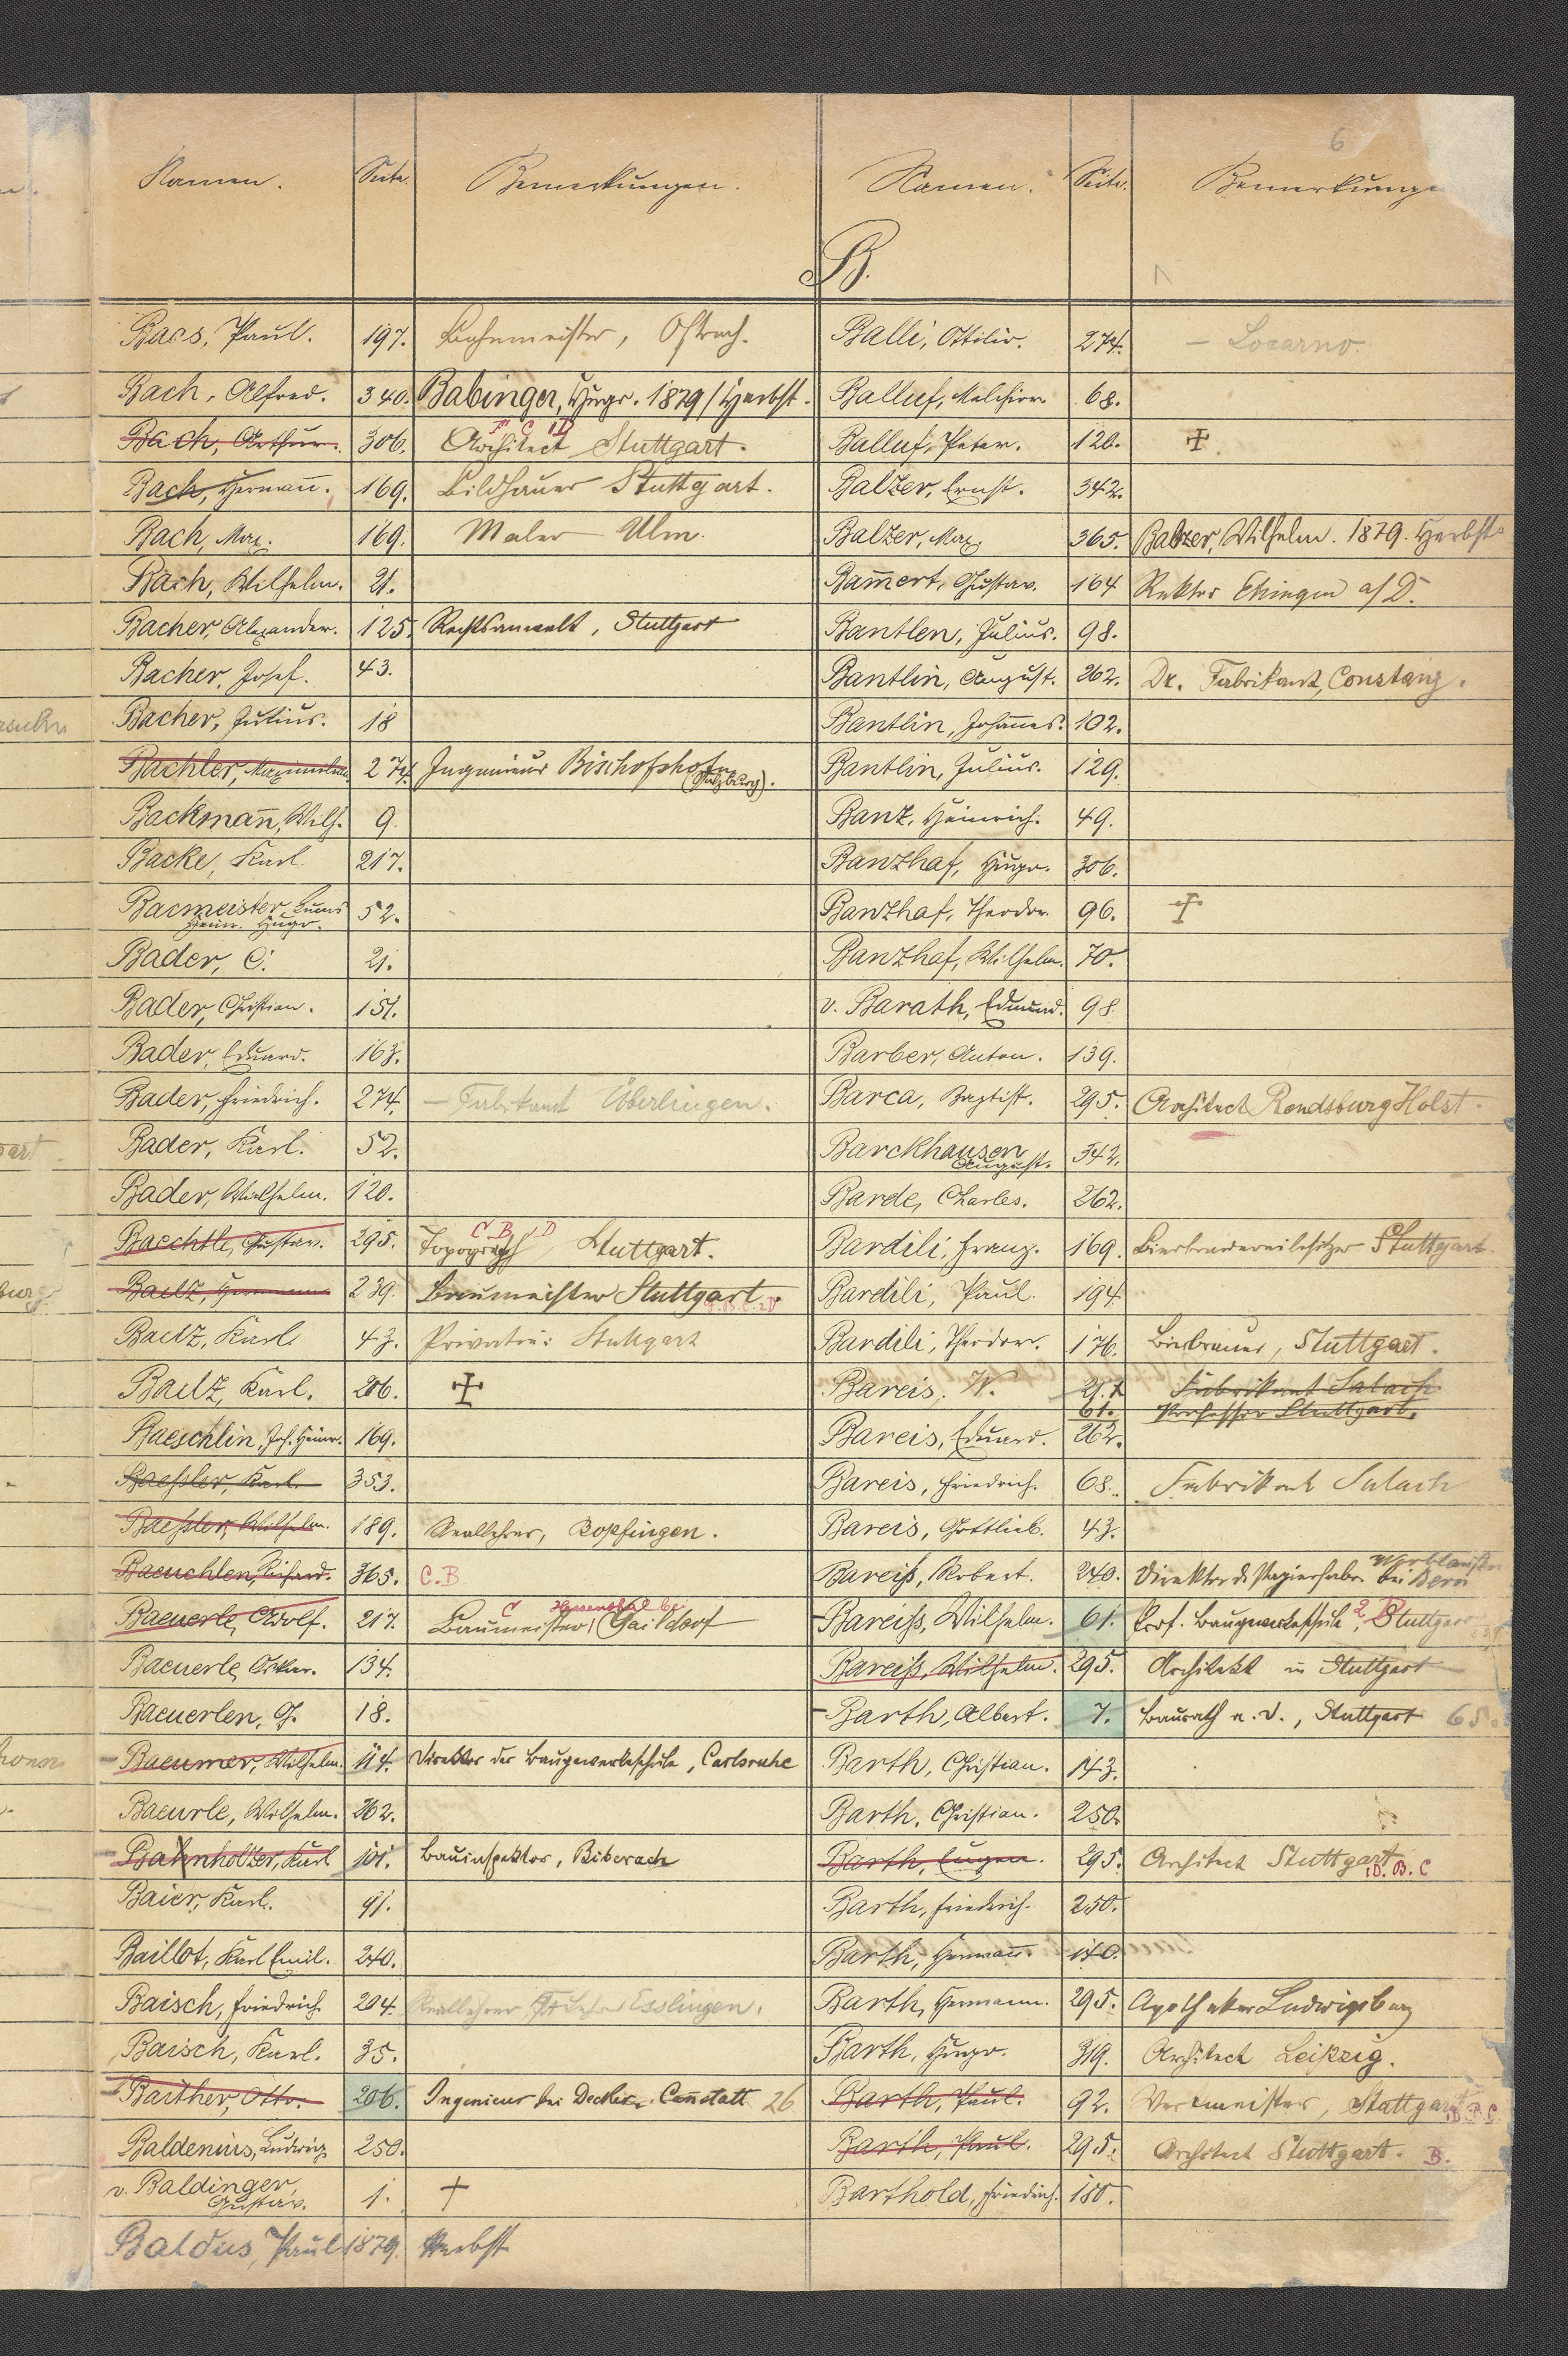 6
Namen. Seite. Bemerkungen. Namen. Seite. Bemerkunge
B.
Baes, Paul. 197. Bahnmeister, Ostrach.
Bach, Alfred. 340. Babinger, Hugo. 1879/Herbst.
Bach, Arthur. 306. Architect Stuttgart. F C 1D
Bach, Hermañ. 169. Bildhauer Stuttgart.
Bach, Max. 169. Maler Ulm.
Bach, Wilhelm. 21.
Bacher, Alexander. 125. Rechtsanwalt, Stuttgart
Bacher, Josef. 43.
Bacher, Julius. 18
Bachler, Maximilian 274. Ingenieur Bischofshofen
(Salzburg).
Backmañ, Wilh. 9.
Backe, Karl. 217.
Bacmeister, Lucas
Heinr. Hugo. 52.
Bader, C. 21.
Bader, Christian. 151.
Bader, Eduard. 163.
Bader, Friedrich. 274. – Fabrikant Überlingen.
Bader, Karl. 52.
Bader, Wilhelm. 120.
Baechtle, Gustav. 295. Topograph Stuttgart. C B 1D
Baelz, Hermann 239. Baumeister Stuttgart.
Baelz, Karl. 43. Privatier Stuttgart
Baelz, Karl. 206. ✝
Baeschlin, Joh. Heinr. 169.
Baeßler, Karl 353.
Baeßler, Wilhelm. 189. Reallehrer, Bopfingen.
Baeuchlen, Richard. 365. C.B
Baeuerle, Adolf. 217. Baumeister Gaildorf C
Baeuerle, Oskar. 134.
Baeuerlen, G. 18.
Baeumer, Wilhelm. 114. Direktor der Baugewerkeschule, Carlsruhe
Baeurle, Wilhelm. 262.
Bahnholzer, Karl 101. Bauinspektor, Biberach
Baier, Karl. 91.
Baillot, Karl Emil. 240.
Baisch, Friedrich. 204. Reallehrer Esslingen.
Baisch, Karl. 35.
Baither, Otto. 206. Ingenieur bei Decker Cañstatt 26
Baldenius, Ludwig 250.
v. Baldinger,
Gustav. 1. †
Baldus, Paul 1879. Herbst
Balli, Ottilio. 274. – Locarno.
Balluf, Melchior. 68.
Balluf, Peter. 120. ✝
Balzer, Ernst. 342.
Balzer, Max. 365. Balzer, Wilhelm. 1879. Herbst
Bam̄ert, Gustav. 164 Rektor Ehingen a/D.
Bantlen, Julius. 98.
Bantlin, August. 262. Dr. Fabrikant, Constanz.
Bantlin, Johañes. 102.
Bantlin, Julius. 129.
Banz, Heinrich. 49.
Banzhaf, Hugo. 306.
Banzhaf, Theodor. 96. ✝
Banzhaf, Wilhelm. 70.
v. Barath, Edmund. 98
Barber, Anton. 139.
Barca, Baptist. 295. Architect Rendsburg Holst.
Barckhausen
August. 342.
Barde, Charles. 262.
Bardili, Franz. 169. Bierbrauereibesitzer Stuttgart.
Bardili, Paul. 194.
Bardili, Theodor. 176. Bierbrauer, Stuttgart.
Bareis, W. 21. Fabrikant Salach
61. Professor Stuttgart.
Bareis, Eduard. 262.
Bareis, Friedrich. 68. Fabrikant Salach
Bareis, Gottlieb. 43.
Bareiß, Robert. 240. Direktor d. Papierfabr. bei Bern
Bareiss, Wilhelm. 61. Prof. Baugewerkeschule, Stuttgart
Bareiß, Wilhelm. 295. Architekt in Stuttgart
Barth, Albert. 7. Baurath a. D., Stuttgart 65.
Barth, Christian. 143.
Barth, Christian. 250.
Barth, Eugen. 295. Architect Stuttgart 1D. B. C
Barth, Friedrich. 250.
Barth, Hermañ. 140.
Barth, Hermann. 295. Apotheker Ludwigsburg
Barth, Hugo. 319. Architect Leipzig.
Barth, Paul. 92. Werkmeister, Stuttgart
Barth, Paul. 295. Architect Stuttgart. B.
Barthold, Friedrich. 180.